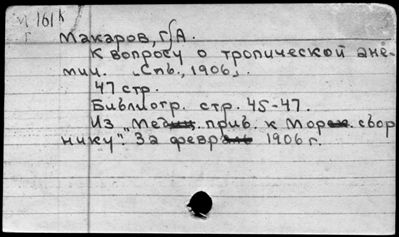 И 161К
Макаров, Г.А.
К вопросу о тропической ане-
мии. Спб., 1906.
47 стр.
Библиогр. стр. 45-47.
Из "Мед. приб. к Морск. сбор
нику". За февр 1906 г.